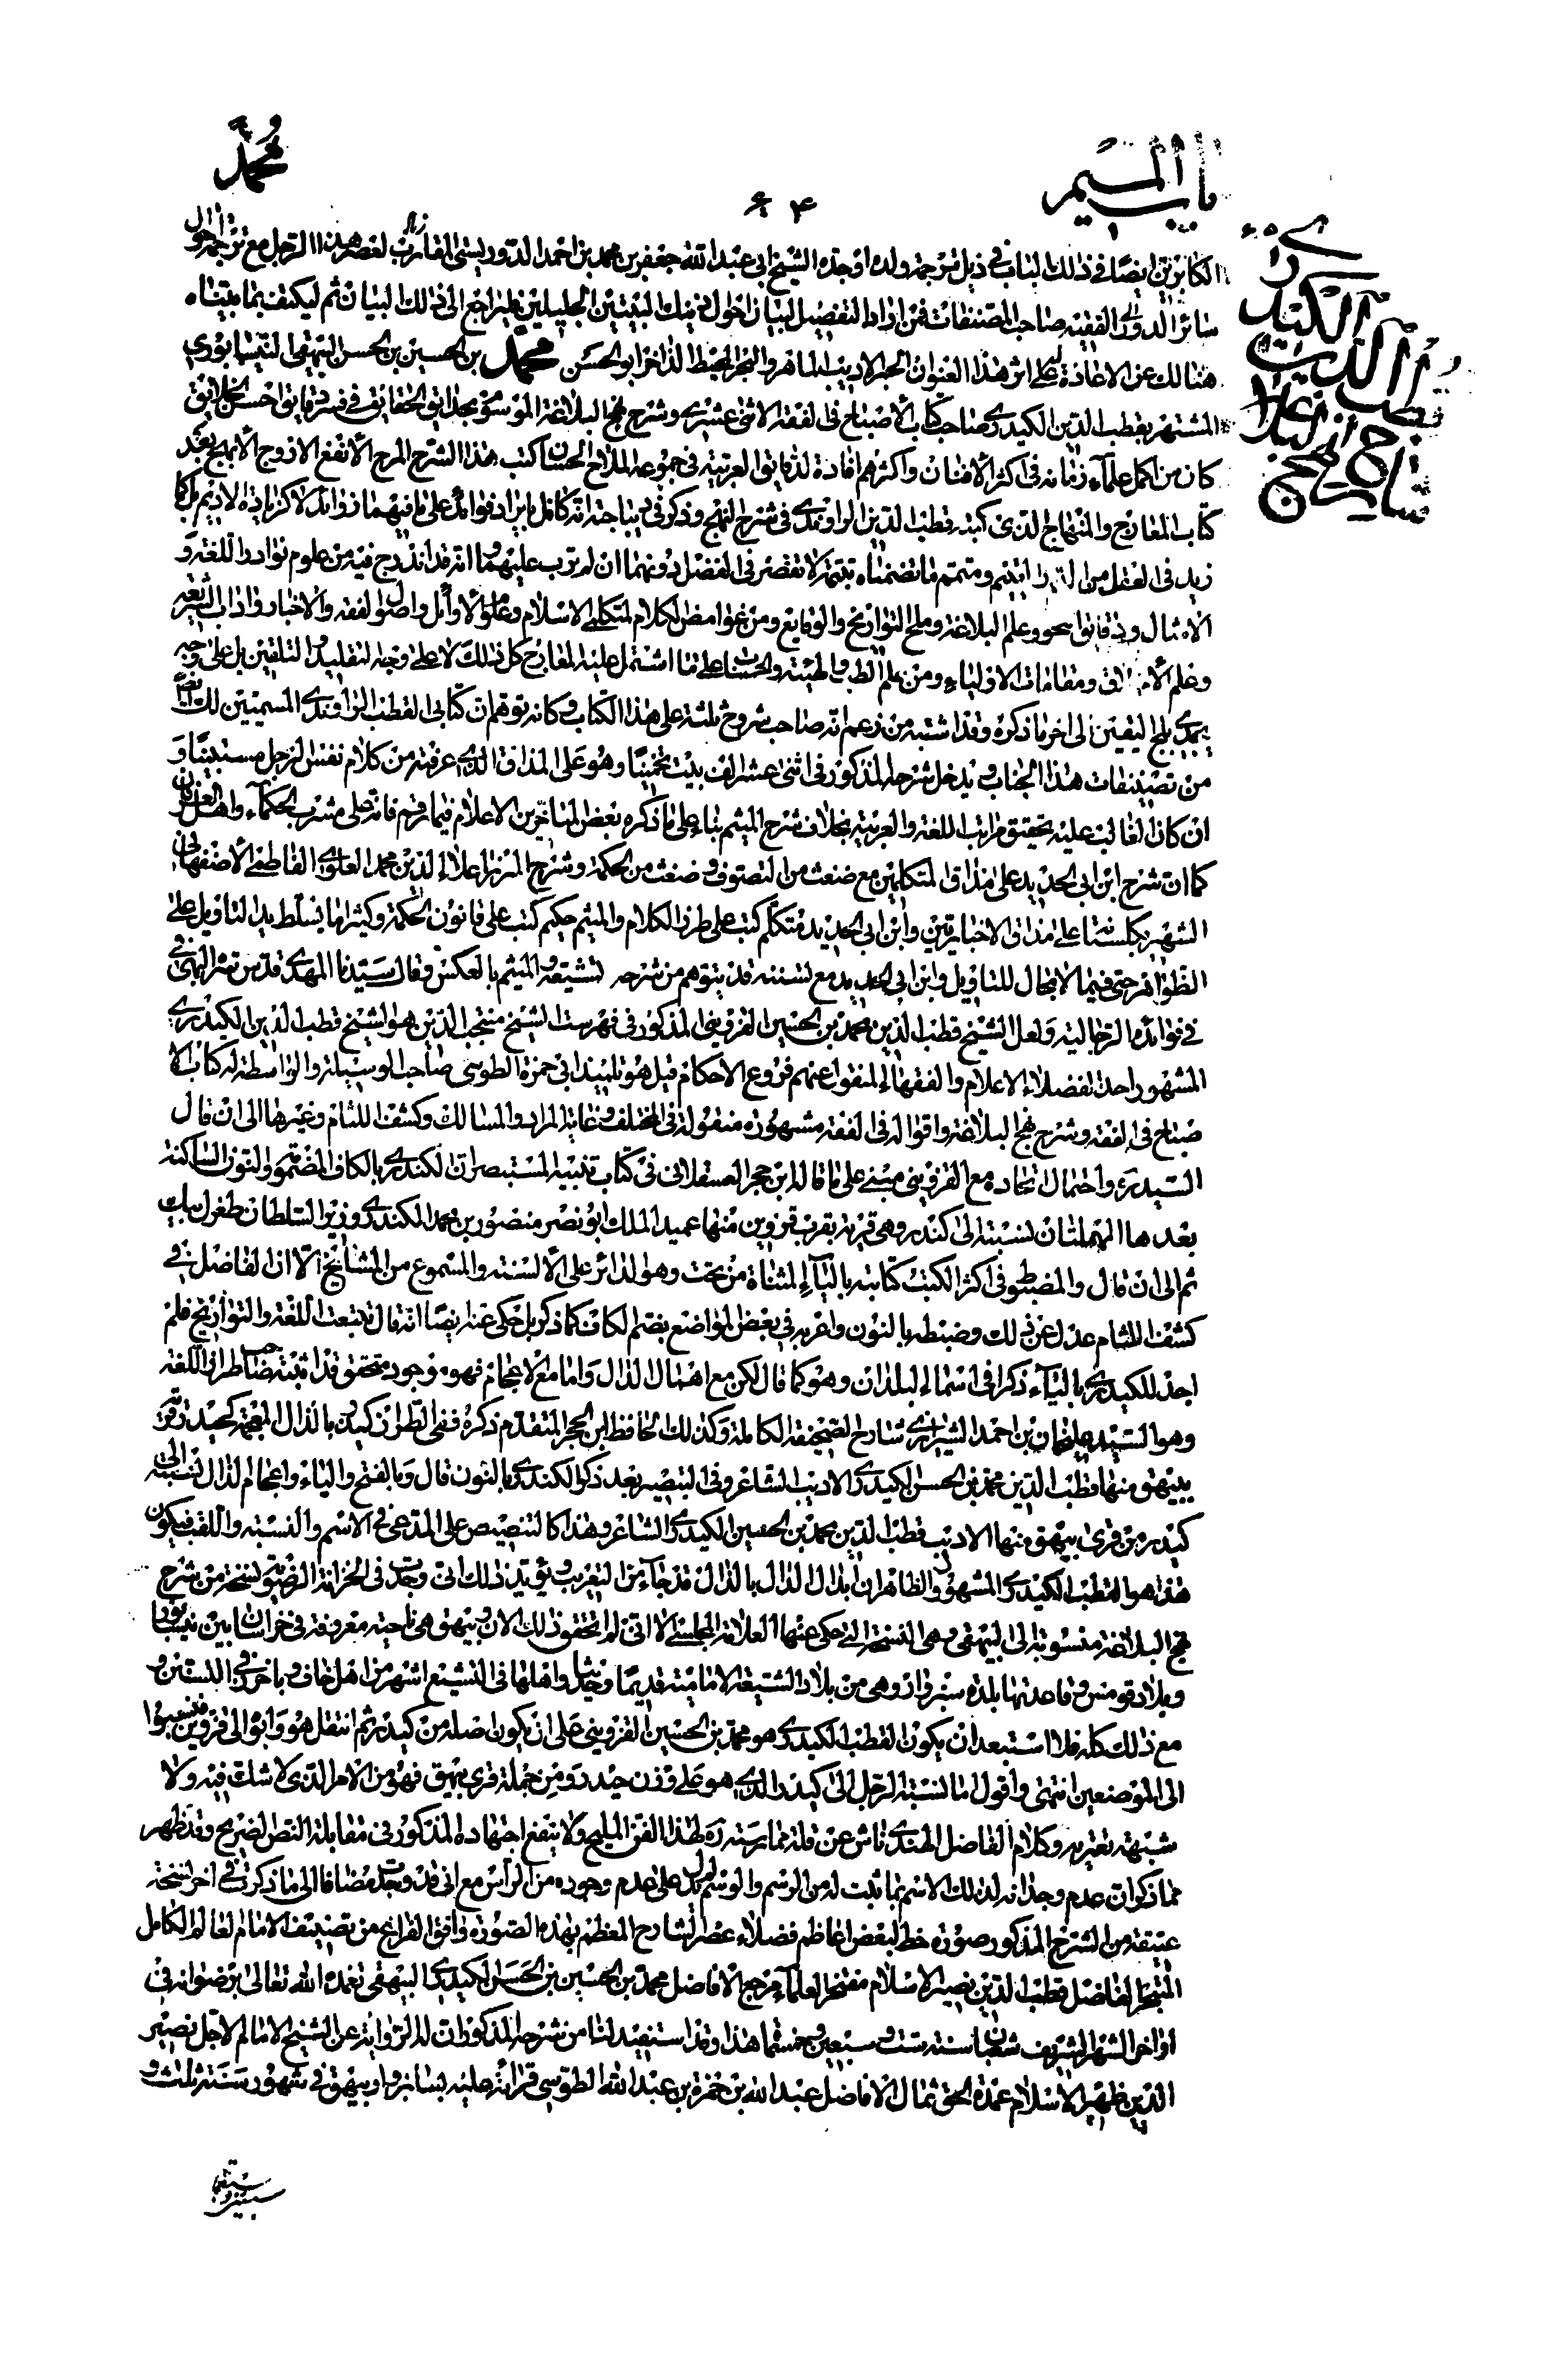 باب الميم
محمد
قطب الدين الكيدري شارح نهج البلاغة
الكابرين ايضا في ذلك الباب في ذيل ترجمة ولده او جده الشيخ ابي عبد الله جعفر بن محمد بن احمد الدوريستي المقارب لعصر هذا الرجل مع ترجمة احوال
سائر الدوال الفقيه صاحب المصنفات فمن اراد التفصيل لبيان احوال ذينك البيتين الجليلين فليراجع الى ذلك البيان ثم ليكتف بما بيناه
هنالك عن الاعادة له على اثر هذا العنوان الحبر الاديب الماهر والبحر المحيط الذاخر ابو الحسن محمد بن الحسين بن الحسن البيهقي النيسابوري
المشتهر بقطب الدين الكيدري صاحب كتاب الاصباح في الفقه الاثنى عشري وشرح نهج البلاغة الموسوم بحدايق الحقايق في فسر دقايق احسن الخلايق
كان من اكمل علماء زمانه في اكثر الافنان واكثرهم افادة لدقايق العربية في جموعه الملاح الحسان كتب هذا الشرح المرح الانفع الازوج الابهج بعد
كتاب المعارج والمنهاج الذي كتبه قطب الدين الراوندي في شرح النهج وذكر في ديباجته انه كافل بايراد فوائد على ما فيهما زوائد لا كزيادة الاديم بل كما
زيد في العقل من الدر اليتيم ومتمم ما تضمناه بتتمة لا تقصر في الفضل دونهما ان لم ترب عليهما وانه قد اندرج فيه من علوم نوادر اللغة و
الامثال ودقايق النحو وعلم البلاغة وملح التواريخ والوقايع ومن غوامض الكلام لمتكلمي الاسلام وعلوم الاوائل واصول الفقه والاخبار واداب الشريعة
وعلم الاخلاق ومقامات الاولياء ومن علم الطب والهيئة والحساب على ما اشتمل عليه المعارج كل ذلك لا على وجه التقليد والتلقين بل على وجه
يجدي بلج اليقين الى اخر ما ذكره وقد اشتبه من زعم انه صاحب شروح ثلثة على هذا الكتاب وكانه توهم ان كتابي القطب الراوندي المسميين لك ايضا
من تصنيفات هذا الجناب ويدخل شرحه المذكور في اثنى عشر الف بيت تخمينا وهو على المذاق الذي عرفته من كلام نفس الرجل مستبينا و
ان كان الغالب عليه تحقيق مراتب اللغة والعربية بخلاف شرح الميثم بناء على ما ذكره بعض المتاخرين الاعلام فيما رقم فانه على مشرب الحكماء واهل العرفان
كما ان شرح ابن ابي الحديد على مذاق المتكلمين مع ضغث من التصوف وضغث من الحكمة وشرح الميرزا علاء الدين محمد العلوي الفاطمي الاصفهاني
الشهير بكلستانه على مذاق الاخباريين وابن ابي الحديد متكلم كتب على طرز الكلام والميثم حكيم كتب على قانون الحكمة وكثيرا ما يسلط يد التاويل على
الظواهر حتى فيما لا مجال للتاويل وابن ابي الحديد مع تسننه قد يتوهم من شرحه تشيعه والميثم بالعكس وقال سيدنا المهدي قدس سره البهي
في فوائده الرجالية ولعل الشيخ قطب الدين محمد بن الحسين القزويني المذكور في فهرست الشيخ منتجب الدين هو الشيخ قطب الدين الكيدري
المشهور احد الفضلاء الاعلام والفقهاء المنقول عنهم فروع الاحكام قيل هو تلميذ ابن حمزة الطوسي صاحب الوسيلة والواسطة له كتاب الا
صباح في الفقه وشرح نهج البلاغة واقواله في الفقه مشهورة منقولة في المختلف وغاية المراد والمسالك وكشف اللثام وغيرها الى ان قال
السيد ره واحتمال اتحاده مع القزويني مبني على ما قاله ابن حجر العسقلاني في كتاب تنبيه المستبصر ان الكندري بالكاف المضمومة والنون الساكنة
بعدها المهملتان نسبته الى كندر وهي قرية بقرب قزوين منها عميد الملك ابو نصر منصور بن محمد الكندري وزير السلطان طغرل بيك
ثم الى ان قال والمضبوط في اكثر الكتب كتابته بالياء المثناة من تحت وهو الدائر على الالسنة والمسموع من المشايخ الا ان الفاضل في
كشف اللثام عدل عن ذلك وضبطه بالنون واعربه في بعض المواضع بضم الكاف كما ذكر بل حكى عنه ايضا انه قال تتبعت اللغة والتواريخ فلم
اجد للكيدري بالياء ذكرا في اسماء البلدان وهو كما قال لكن مع اهمال الدال واما مع الاعجام فهو موجود متحقق قد اثبته صاحب طراز اللغة
وهو السيد عليخان بن احمد الشيرازي شارح الصحيفة الكاملة وكذلك الحافظ ابن الحجر المتقدم ذكره ففي الطراز كيذر بالذال المعجمة كحيدر قرية من
بيهق منها قطب الدين محمد بن الحسن الكيذري الاديب الشاعر وفي التبصير بعد ذكر الكندري بالنون قال وبالفتح والياء واعجام الذال نسبة الى
كيذر من قرى بيهق منها الاديب قطب الدين محمد بن الحسين الكيذري الشاعر وهذا كالتنصيص على المدعى في الاسم والنسبة واللقب فيكون
هذا هو القطب الكيدري المشهور والظاهر ان ابدال الدال بالذال قد جاء من التعريب ويؤيد ذلك اني وجدت في الخزانة الرضوية نسخة من شرح
نهج البلاغة منسوبة الى البيهقي وهي النسخة التي حكى عنها العلامة المجلسي الا اني لم اتحقق ذلك الان وبيهق هي ناحية معروفة في خراسان بين نيسابور
وبلاد قومس وقاعدتها بلدة سبزوار وهي من بلاد الشيعة الامامية قديما وحديثا واهلها في التشيع اشهر من اهل خاف وباخرز في التسنن و
مع ذلك كله فلا استبعد ان يكون القطب الكيدري هو محمد بن الحسين القزويني على ان يكون اصله من كيدر ثم انتقل هو وابوه الى قزوين فنسبوا
الى الموضعين انتهى واقول اما نسبة الرجل الى كيذر الذي هو على وزن حيدر ومن جملة قرى بيهق فهو من الامر الذي لا شك فيه ولا
شبهة تعتريه وكلام الفاضل الهندي ناش عن قلة ممارسته ره لهذا الفن المليح ولا ينفع اجتهاده المذكور في مقابلة النص الصريح وقد ظهر
مما ذكر ان عدم وجدانه لذلك الاسم بما ثبت له من الرسم والوسم لم يدل على عدم وجوده من الراس مع اني قد وجدت مضافا الى ما ذكر في اخر نسخة
عتيقة من الشرح المذكور صورة خط لبعض اعاظم فضلاء عصر الشارح المعظم بهذه الصورة وافق الفراغ من تصنيف الامام العالم الكامل
المتبحر الفاضل قطب الدين نصير الاسلام مفخر العلماء مرجع الافاضل محمد بن الحسين بن الحسن الكيدري البيهقي تغمده الله تعالى برضوانه في
اواخر الشهر الشريف شعبان سنة ست وسبعين وخمسمائة هذا وقد استفيد لنا من شرحه المذكور ان له الرواية عن الشيخ الامام الاجل نصير
الدين ظهير الاسلام عمدة الحق ثمال الافاضل عبد الله بن حمزة بن عبد الله الطوسي قرائة عليه بسابزوار وبيهق في شهور سنة ثلث و